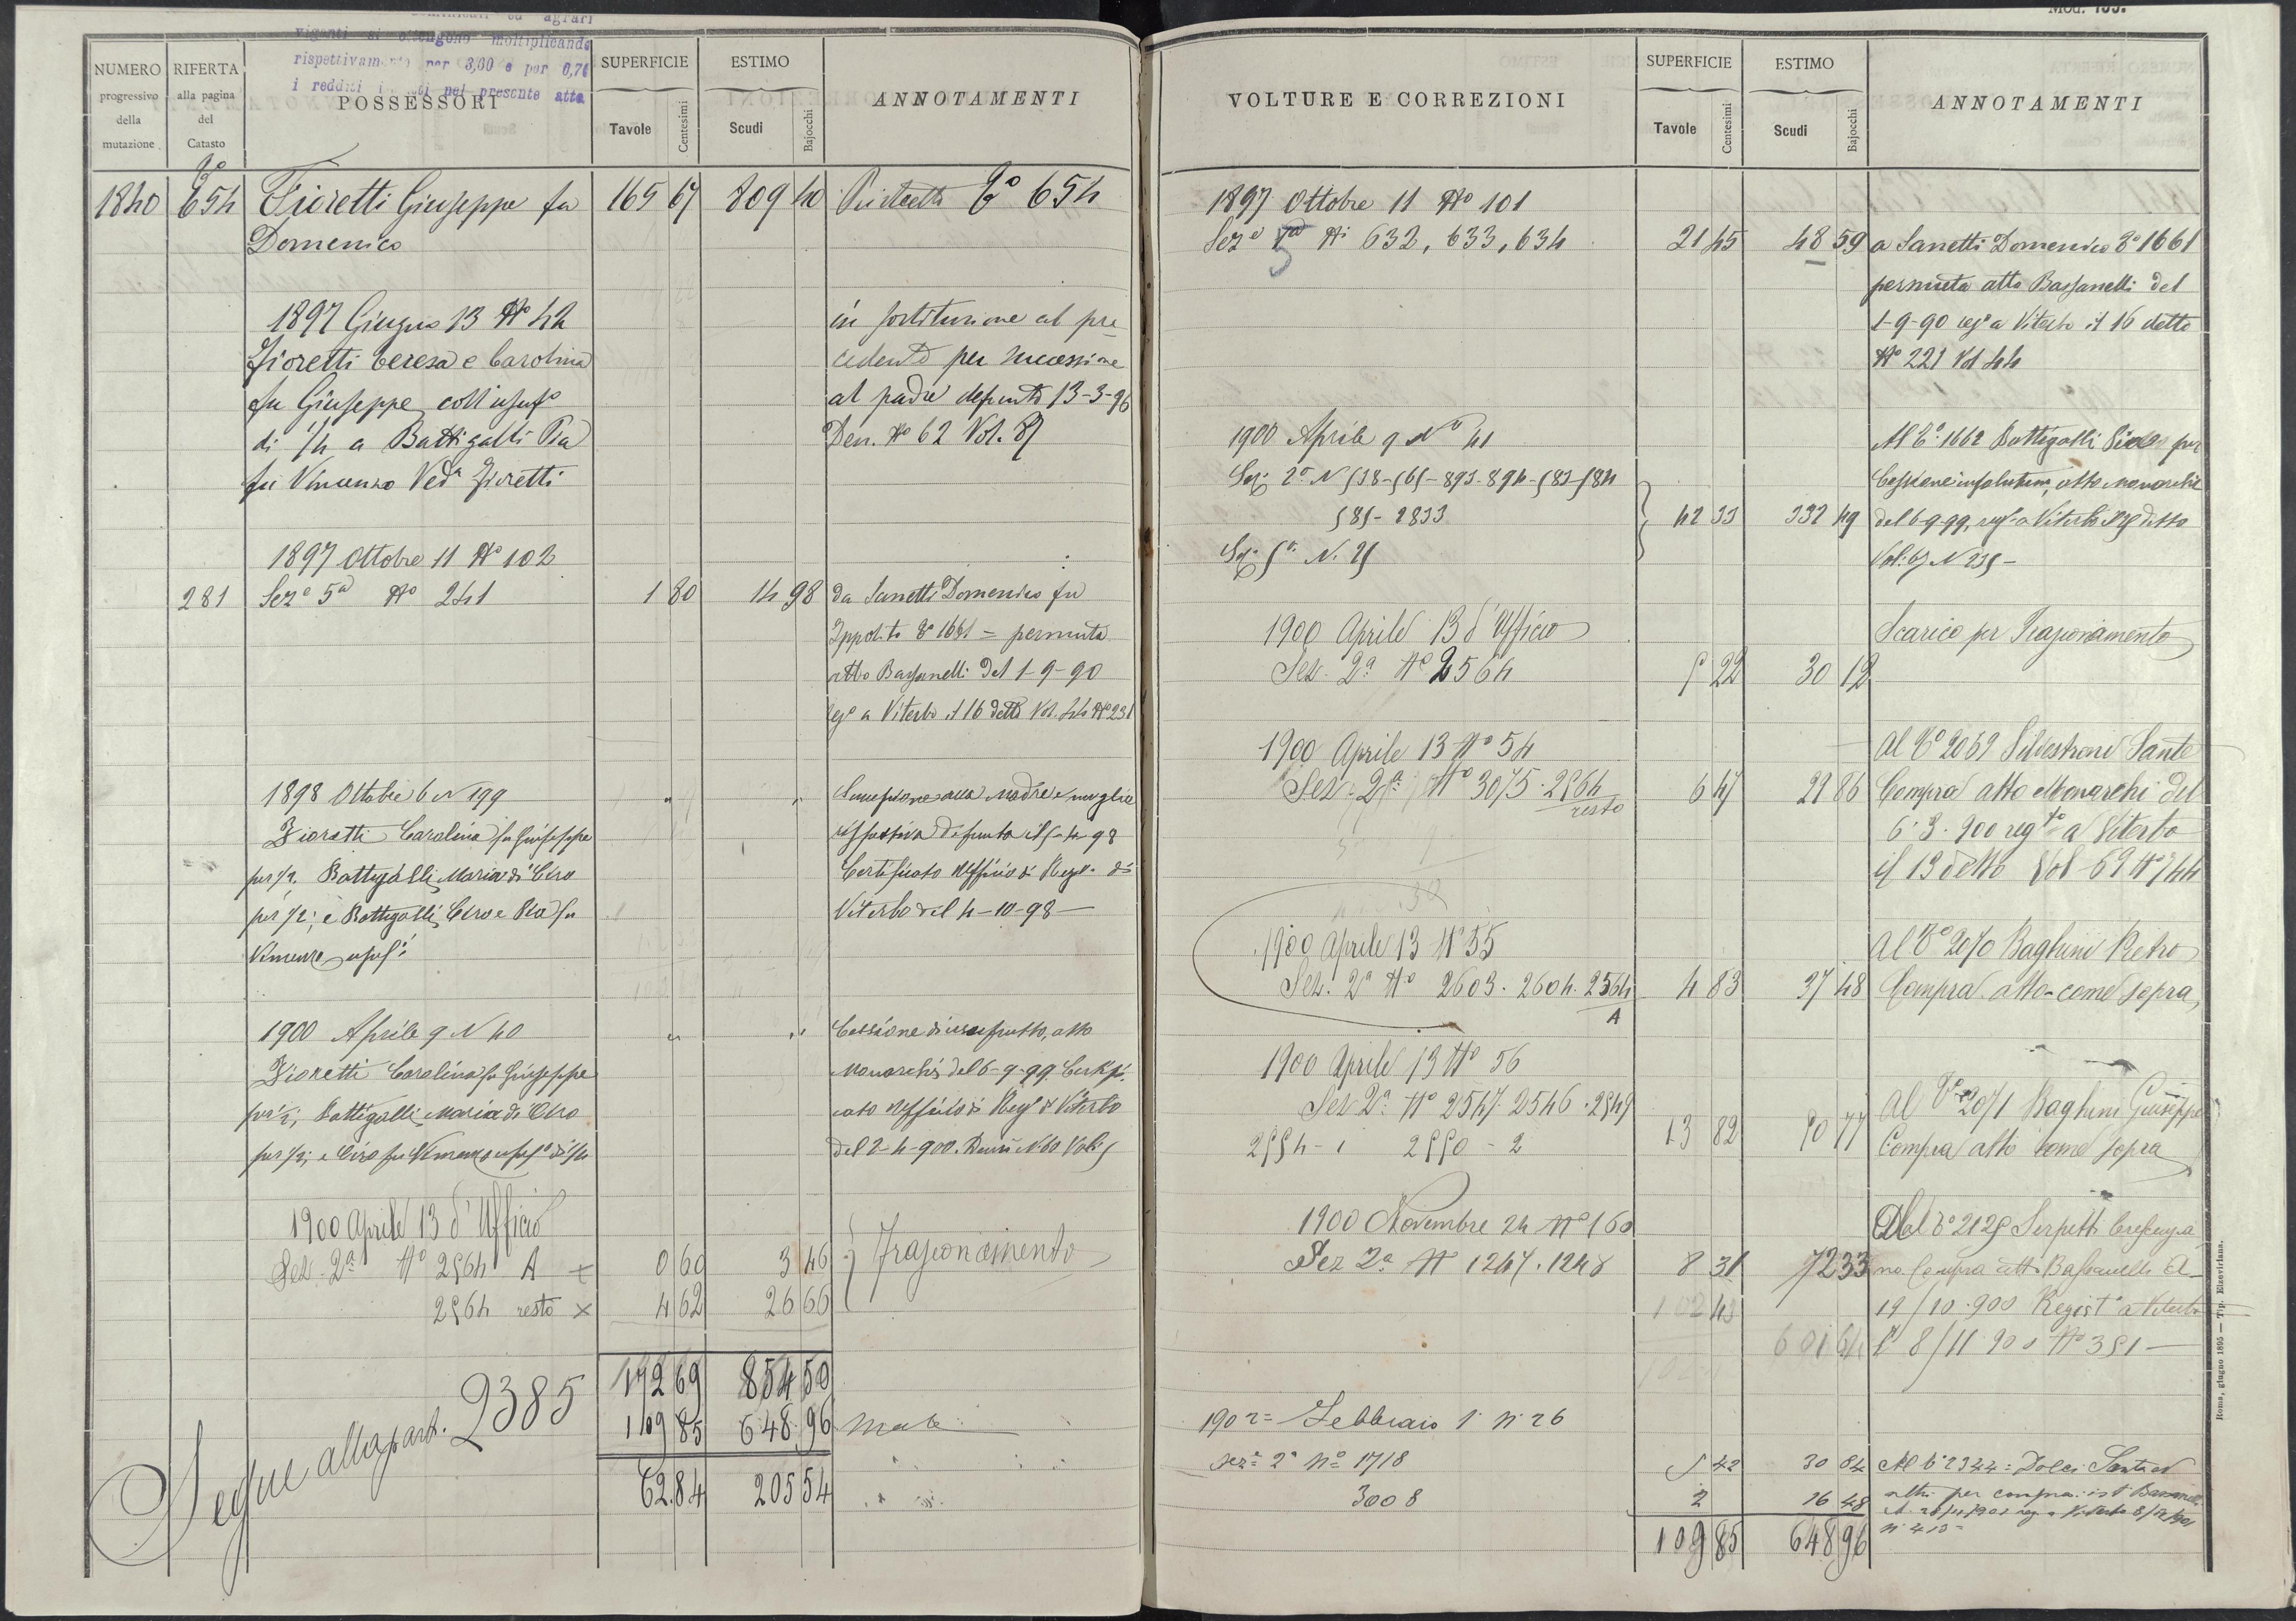 Mod. 133.
agrari
vigenti si ottengono moltiplicando
rispettivamente per 3,60 e per 0,76
i redditi nel presente atto
NUMERO progressivo della mutazione
RIFERTA alla pagina del Catasto
POSSESSORI
SUPERFICIE
Tavole Centesimi
ESTIMO
Scudi Bajocchi
ANNOTAMENTI
1840 654 Fioretti Giuseppe fu 165 67 809 40 654
Domenico
1897 Giugno 13 No 42 in sostituzione al pre
Fioretti Teresa e Carolina cedente per successione
fu Giuseppe coll'usufo al padre defunto 13-3-96
di 1/4 a Battigalli Pia Den. No 62 Vol. 87
fu Vincenzo Veda Fioretti
1897 Ottobre 11 No 102
281 Seze 5a No 241 1 80 14 98 da Sanetti Domenico fu
Ippolito 1661 = permuta
atto Bassanelli del 1-9-90
rego a Viterbo il 16 detto Vol. 44 No 231
1898 Ottobre 6 N 199 " " Successione alla madre e moglie
Fioretti Carolina fu Giuseppe rispettiva defunta il 5-4-98
per 1/2. Battigalli Maria di Ciro Certificato Ufficio di Rego di
per 1/2; e Battigalli Ciro e Pia fu Viterbo del 4-10-98 —
Vincenzo usufi
1900 Aprile 9 N 40 " " Cessione di usufrutto, atto
Fioretti Carolina fu Giuseppe Monarchi del 6-9-99. Certifi.
per 1/2; Battigalli Maria di Ciro cato Ufficio di Rego di Viterbo
per 1/2; e Ciro fu Vincenzo usufo di 1/4 del 2-4-900.
1900 Aprile 13 d'Ufficio
Sez. 2a No 2564 A + 0 60 3 46 Frazionamento
2564 resto × 4 62 26 66
172 69 854 50
109 85 648 96
62.84 205 54
Segue alla part. 2385
VOLTURE E CORREZIONI
SUPERFICIE
Tavole Centesimi
ESTIMO
Scudi Bajocchi
ANNOTAMENTI
1897 Ottobre 11 No 101
Seze Va Ni 632, 633, 634 21 45 48 59 a Sanetti Domenico 1661
5
permuta atto Bassanelli del
1-9-90 rego a Viterbo il 16 detto
No 221 Vol 44
1900 Aprile 9 No 41 Al 1662 Battigalli per
Sez. 2a N 538-565-893-894-583-584 Cessione insolutum, atto Monarchi
585-2833 42 33 332 49 del 6-9-99, rego a Viterbo detto
Sez. 5a N. 25 Vol. 67 N 235 -
1900 Aprile 13 d'Ufficio Scarico per Frazionamento
Sez. 2a No 2564 5 22 30 12
1900 Aprile 13 No 54 Al 2069 Silvestroni Sante
Sez. 2a No 3075. 2564 6 47 29 86 Compra atto Monarchi del
resto 6.3.900 regto a Viterbo
il 13 detto Vol 69 No 744
1900 Aprile 13 No 55 Al 2070 Baghini Pietro
Sez. 2a No 2603. 2604. 2564 4 83 37 48 Compra atto come sopra
A
1900 Aprile 13 No 56 Al 2071 Baghini Giuseppe
Sez 2a No 2547. 2546. 2549 13 82 90 77 Compra atto come sopra
2554-1 2550-2
1900 Novembre 24 No 160 Al 2125 Serpetti Crescenzia
Sez 2a No 1247. 1248 8 31 72 33 no Compra atto Bassanelli A
102 43 19/10.900 Registo a Viterbo
601 64 l' 8/11 900 No 351 —
1902 = Febbraio 1 n. 26
seza 2a No 1718 5 42 30 84 Al 2344 = Dolci Santa ed
3008 2 16 48 altri per compra ist. Bassanelli
109 85 648 96
Roma, giugno 1895 — Tip. Elzeviriana.